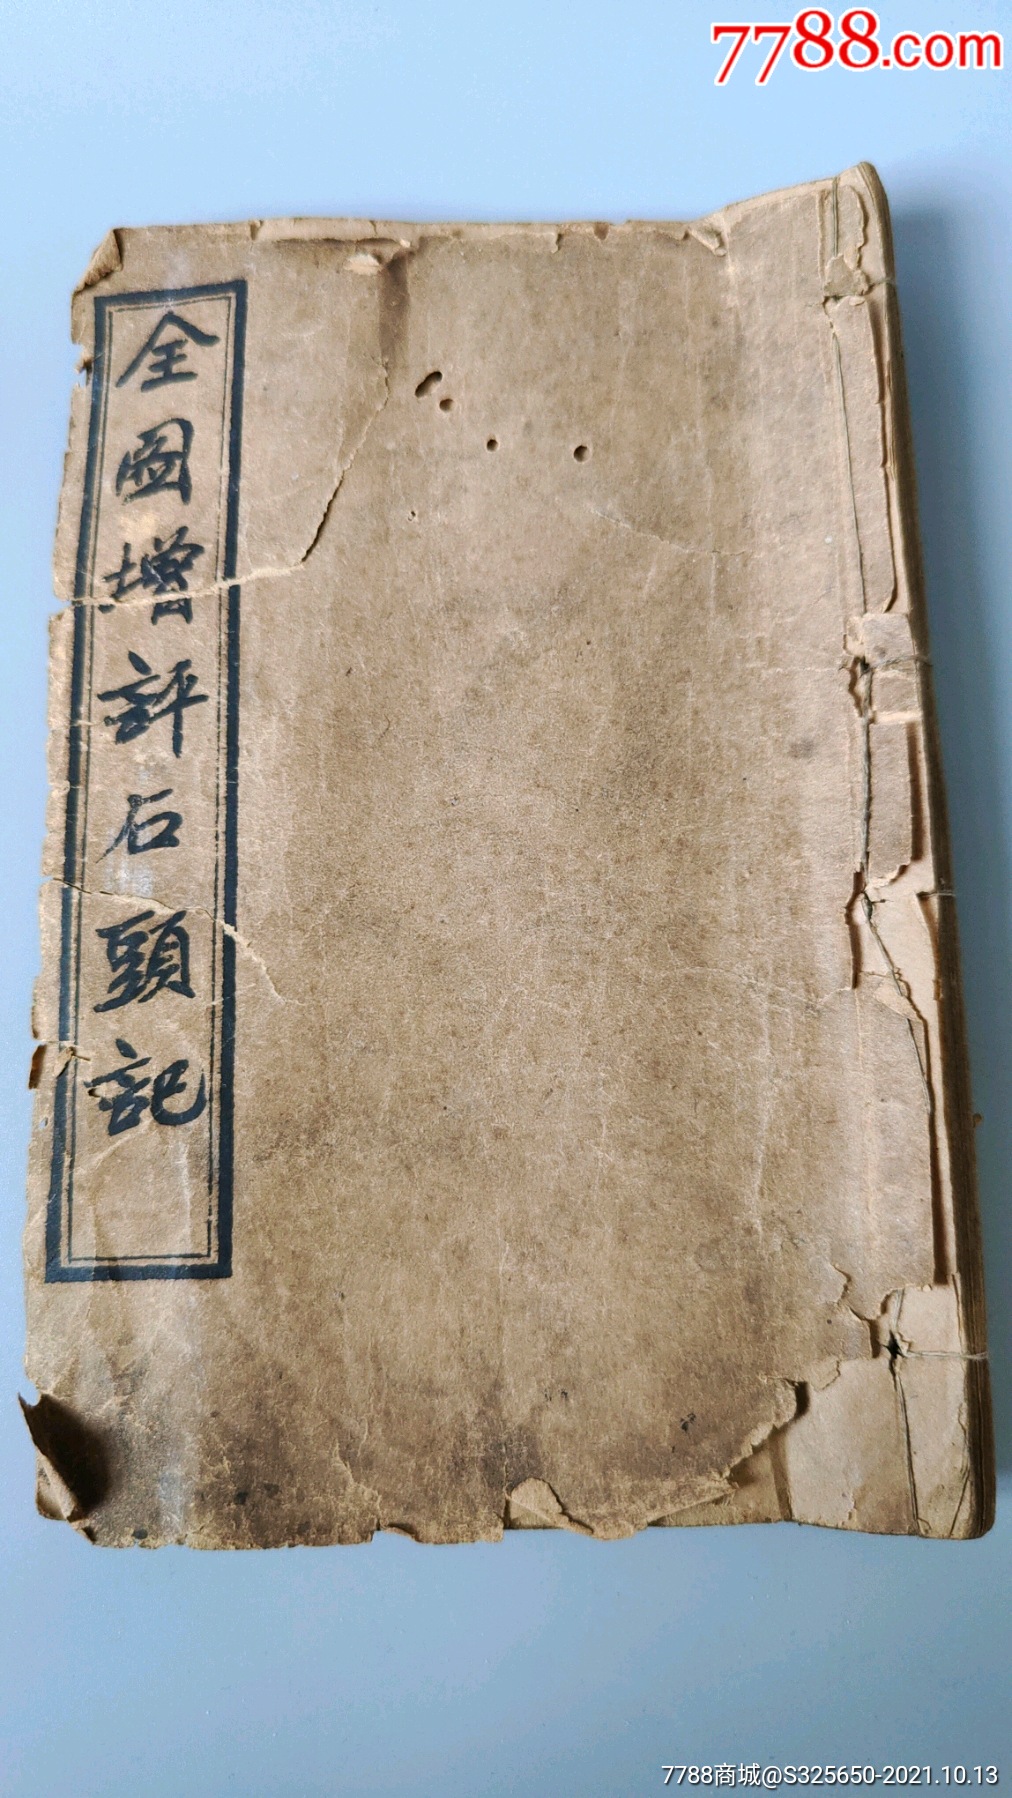 7788.com
全圖增評石頭記
7788商城@S325650-2021.10.13